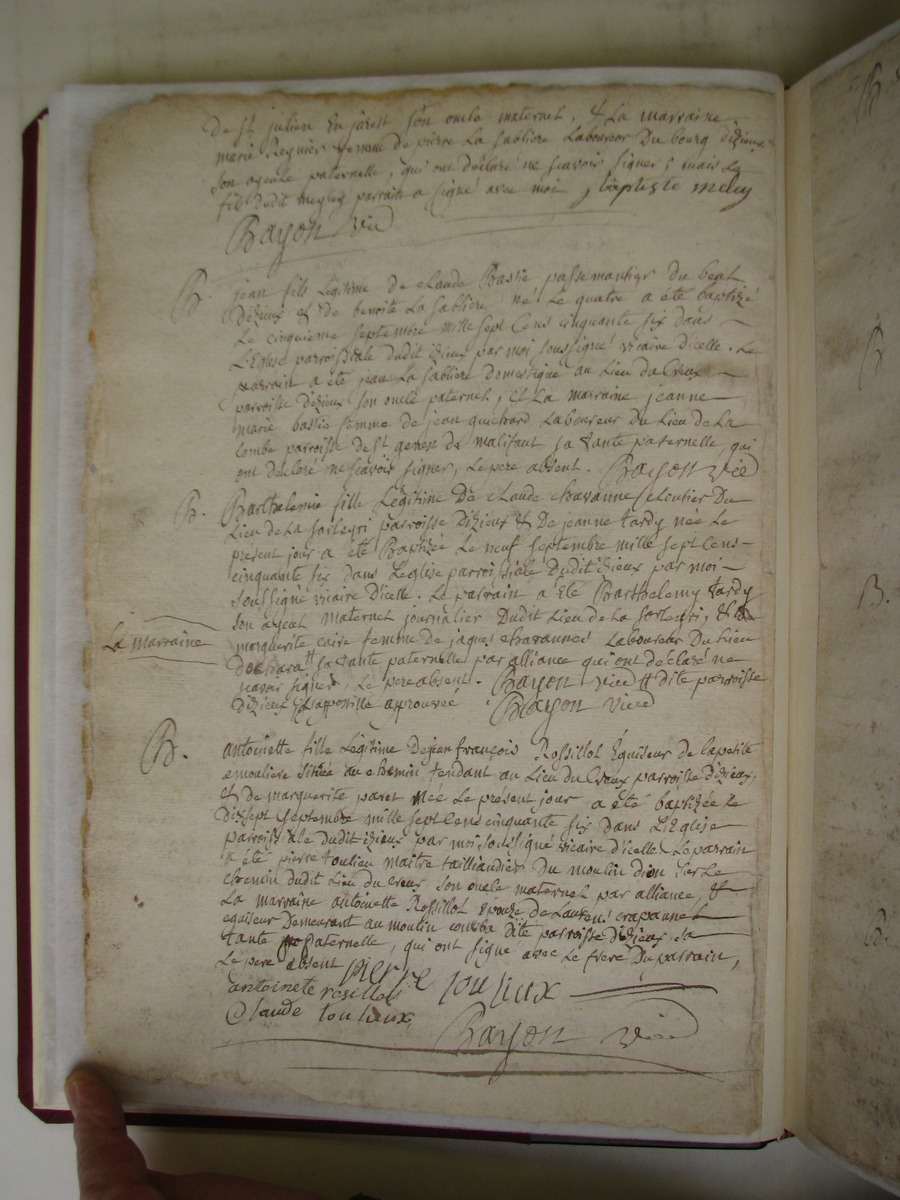 de St julien En jarest son oncle maternel, & La marraine
marie Reynier femme de pierre La sabliere Laboureur Du bourg dizieux
son ayeule paternelle, qui ont déclaré ne scavoir signer, mais Le
fils dudit parrain a signé avec moi, baptiste
Bayon vic
B. jean fils Légitime de claude Bastie passemantier du
dizieux & de benoite La sabliere né Le quatre a été baptizé
Le cinquieme septembre mille sept Cens cinquante six dans
L'Eglise parroissiale dudit izieux par moi soussigné vicaire d'icelle. Le
parrain a été jean La sabliere Domestique au Lieu du Creux
parroisse dizieux son oncle paternel, et La marraine jeanne
marie bastie femme de jean quiblard Laboureur Du Lieu de La
Combe parroisse de St genest de malifaut sa tante paternelle, qui
ont déclaré ne scavoir signer, Le pere absent. Bayon vic
B. Barthelemie fille Légitime De claude chavanne cloutier Du
Lieu de La parroisse Dizieux & De jeanne tardy née Le
présent jour a été Baptizée Le neuf septembre mille sept Cens
cinquante six dans L'eglise parroissiale Dudit izieux par moi
soussigné vicaire d'icelle. Le parrain a Eté Barthelemy tardy
son ayeul maternel journalier Dudit Lieu de La &
La marraine
marguerite caire femme De jaques chavannes Laboureur Du Lieu
sa tante paternelle par alliance qui ont déclaré ne
scavoir signer, Le pere absent. Bayon vic # dite parroisse
dizieux & L'appostille approuvée Bayon vic
B. antoinette fille Légitime De jean françois Rossillot Eguiseur de La petite
emouliere située au chemin tendant au Lieu du Creux parroisse dizieux,
et de marguerite paret Née Le présent jour a été baptizée Le
dixsept septembre mille sept Cens cinquante six dans L'Eglise
parroissiale dudit izieux par moi soussigné vicaire d'icelle Le parrain
a été pierre toulieu maitre taillandier Du moulin dion sur Le
chemin dudit Lieu du creux son oncle maternel par alliance, &
La marraine antoinette Rossillot Epouze de Laurens crapanne
eguiseur Demeurant au moulin dite parroisse dizieux sa
tante paternelle, qui ont signé avec Le frere Du parrain,
Le pere absent pierre toulieux
antoinete rosillot
Claude toulieux
Bayon vic